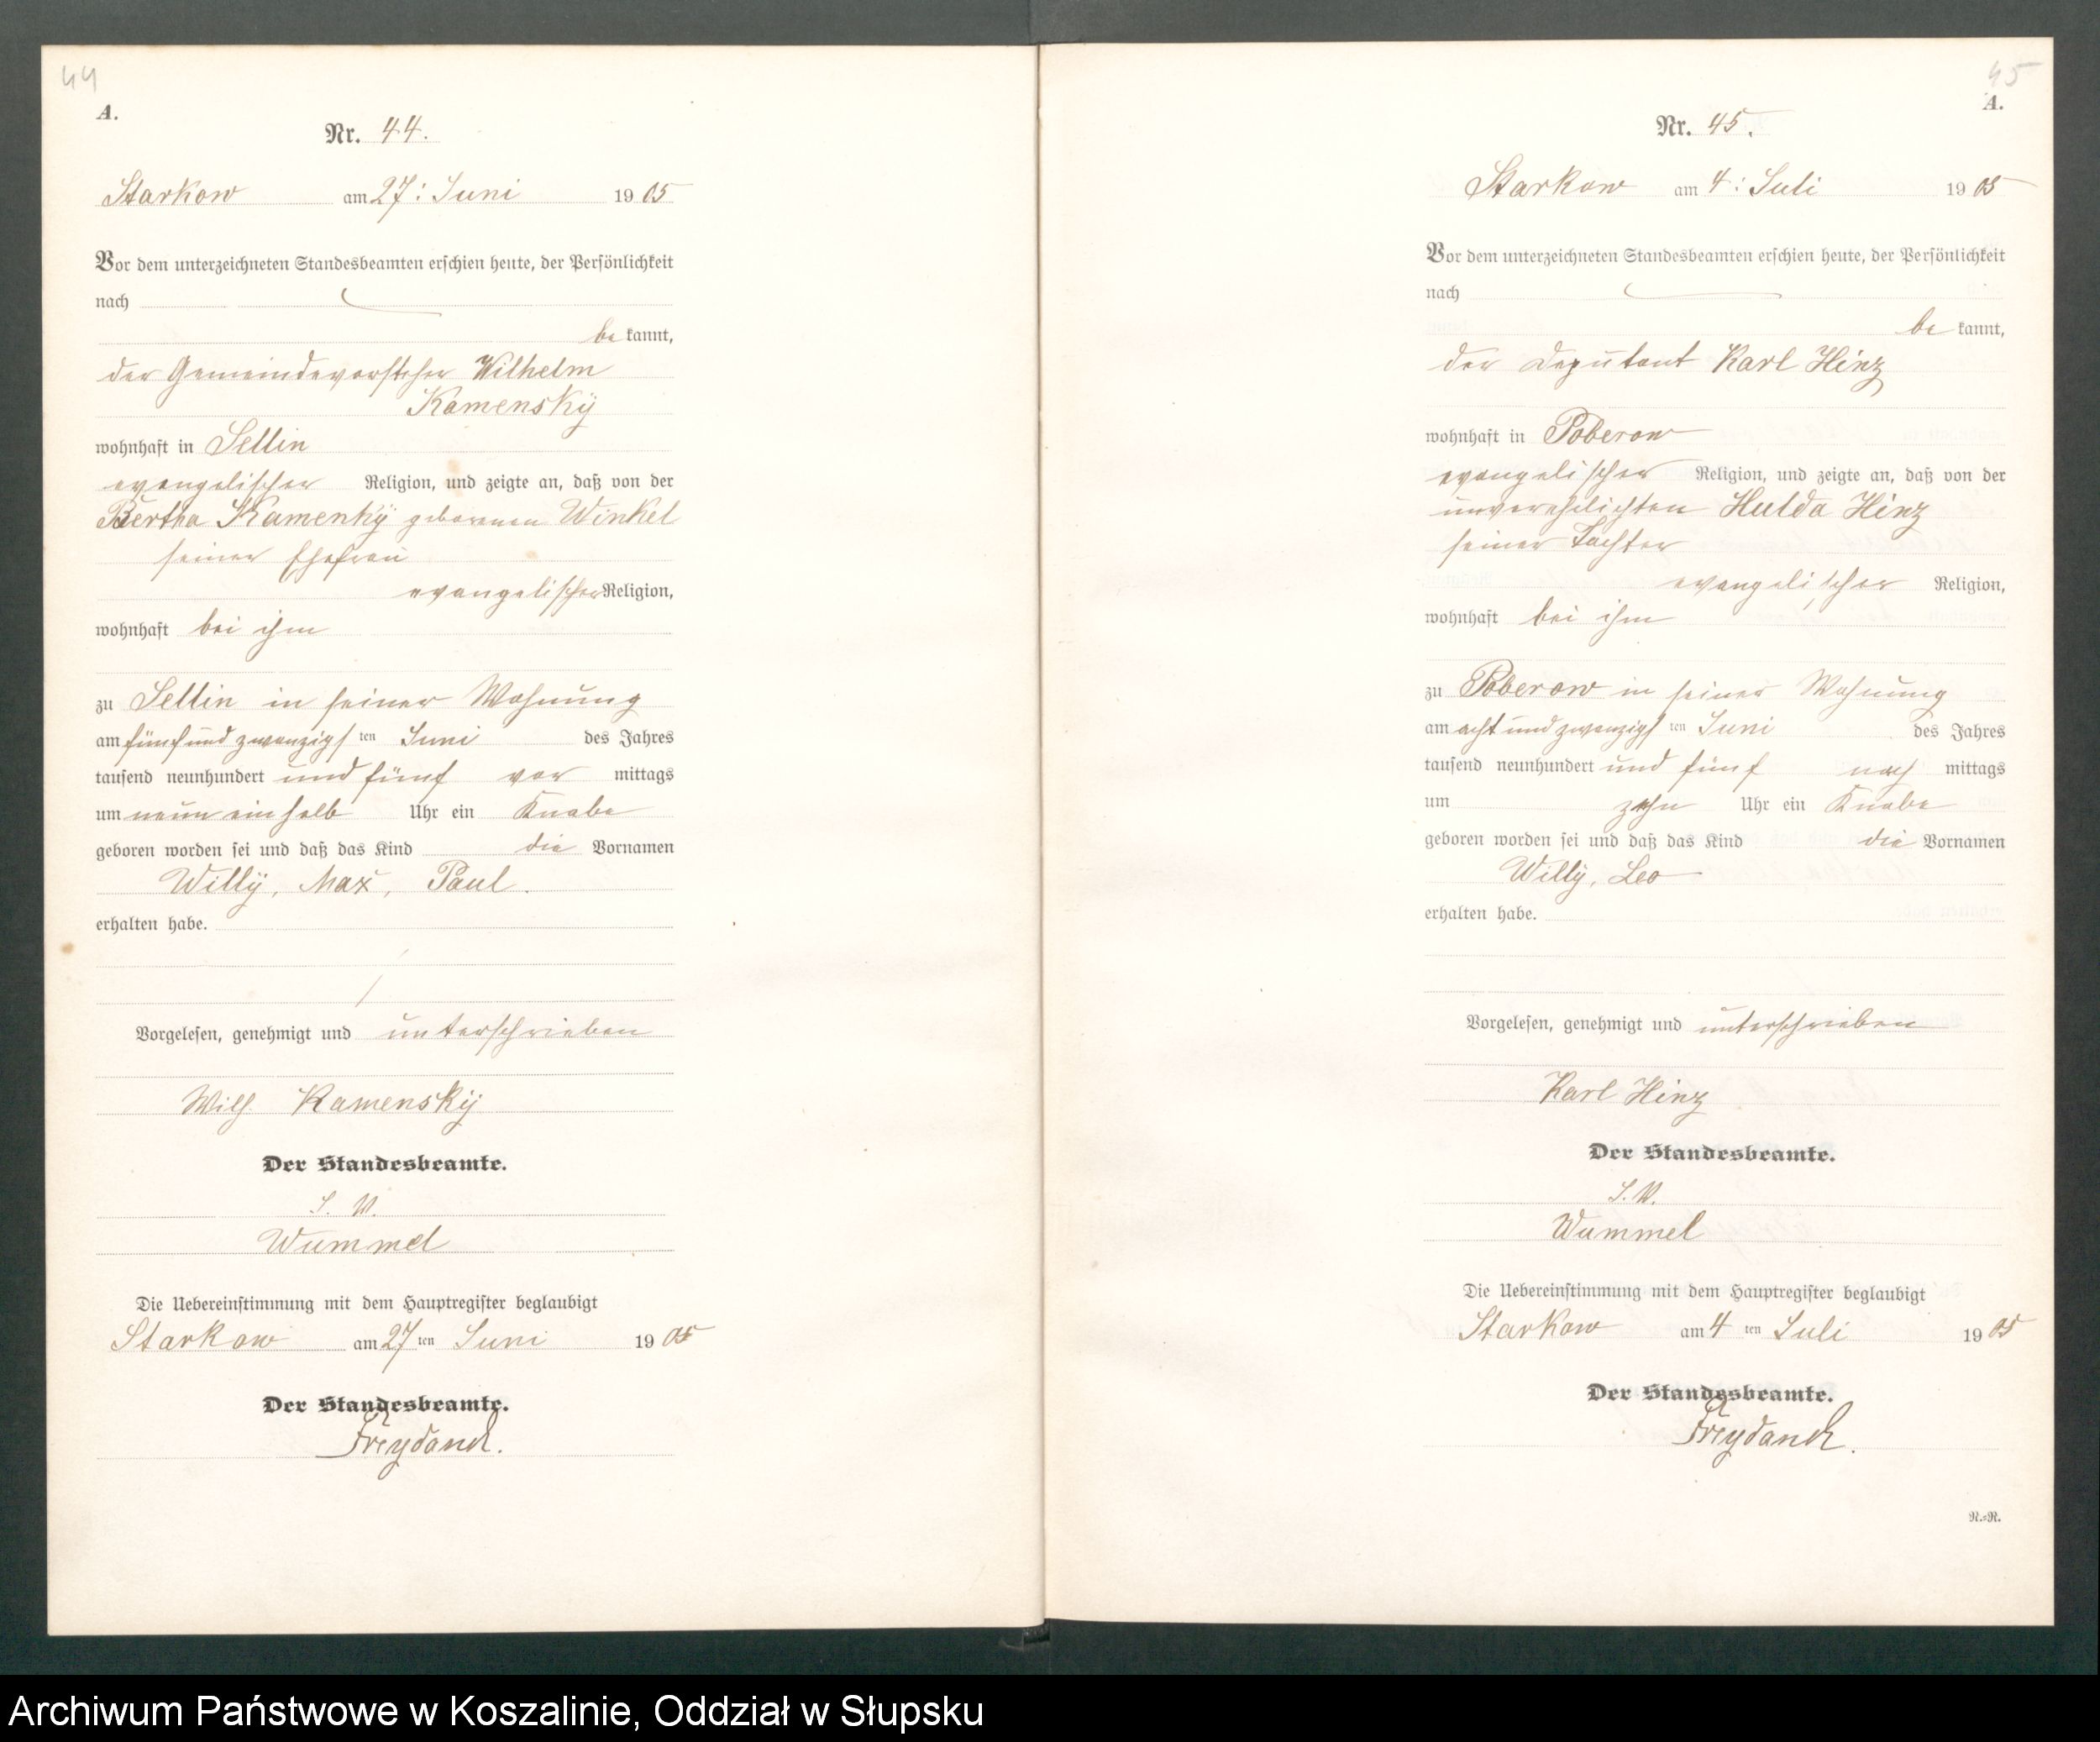 44
A.
Nr. 44.
Starkow am 27: Juni 1905
Vor dem unterzeichneten Standesbeamten erschien heute, der Persönlichkeit
nach
be kannt,
der Gemeindevorsteher Wilhelm
Kamensky
wohnhaft in Sellin
evangelischer Religion, und zeigte an, daß von der
Bertha Kamenky geborenen Winkel
seiner Ehefrau
evangelischer Religion,
wohnhaft bei ihm
zu Sellin in seiner Wohnung
am fünfundzwanzigsten Juni des Jahres
tausend neunhundert und fünf vor mittags
um neun ein halb Uhr ein Knabe
geboren worden sei und daß das Kind die Vornamen
Willy, Max, Paul.
erhalten habe.
Vorgelesen, genehmigt und unterschrieben
Wilh. Kamensky
Der Standesbeamte.
I. V.
Wummel
Die Uebereinstimmung mit dem Hauptregister beglaubigt
Starkow am 27ten Juni 1905
Der Standesbeamte.
Freydanck.
45
A.
Nr. 45.
Starkow am 4: Juli 1905
Vor dem unterzeichneten Standesbeamten erschien heute, der Persönlichkeit
nach
be kannt,
der Deputant Karl Hinz
wohnhaft in Poberow
evangelischer Religion, und zeigte an, daß von der
unverehelichten Hulda Hinz
seiner Tochter
evangelischer Religion,
wohnhaft bei ihm
zu Poberow in seiner Wohnung
am acht und zwanzigsten Juni des Jahres
tausend neunhundert und fünf nach mittags
um zehn Uhr ein Knabe
geboren worden sei und daß das Kind die Vornamen
Willy, Leo
erhalten habe.
Vorgelesen, genehmigt und unterschrieben
Karl Hinz
Der Standesbeamte.
I. V.
Wummel
Die Uebereinstimmung mit dem Hauptregister beglaubigt
Starkow am 4ten Juli 1905
Der Standesbeamte.
Freydanck.
R.=R.
Archiwum Państwowe w Koszalinie, Oddział w Słupsku